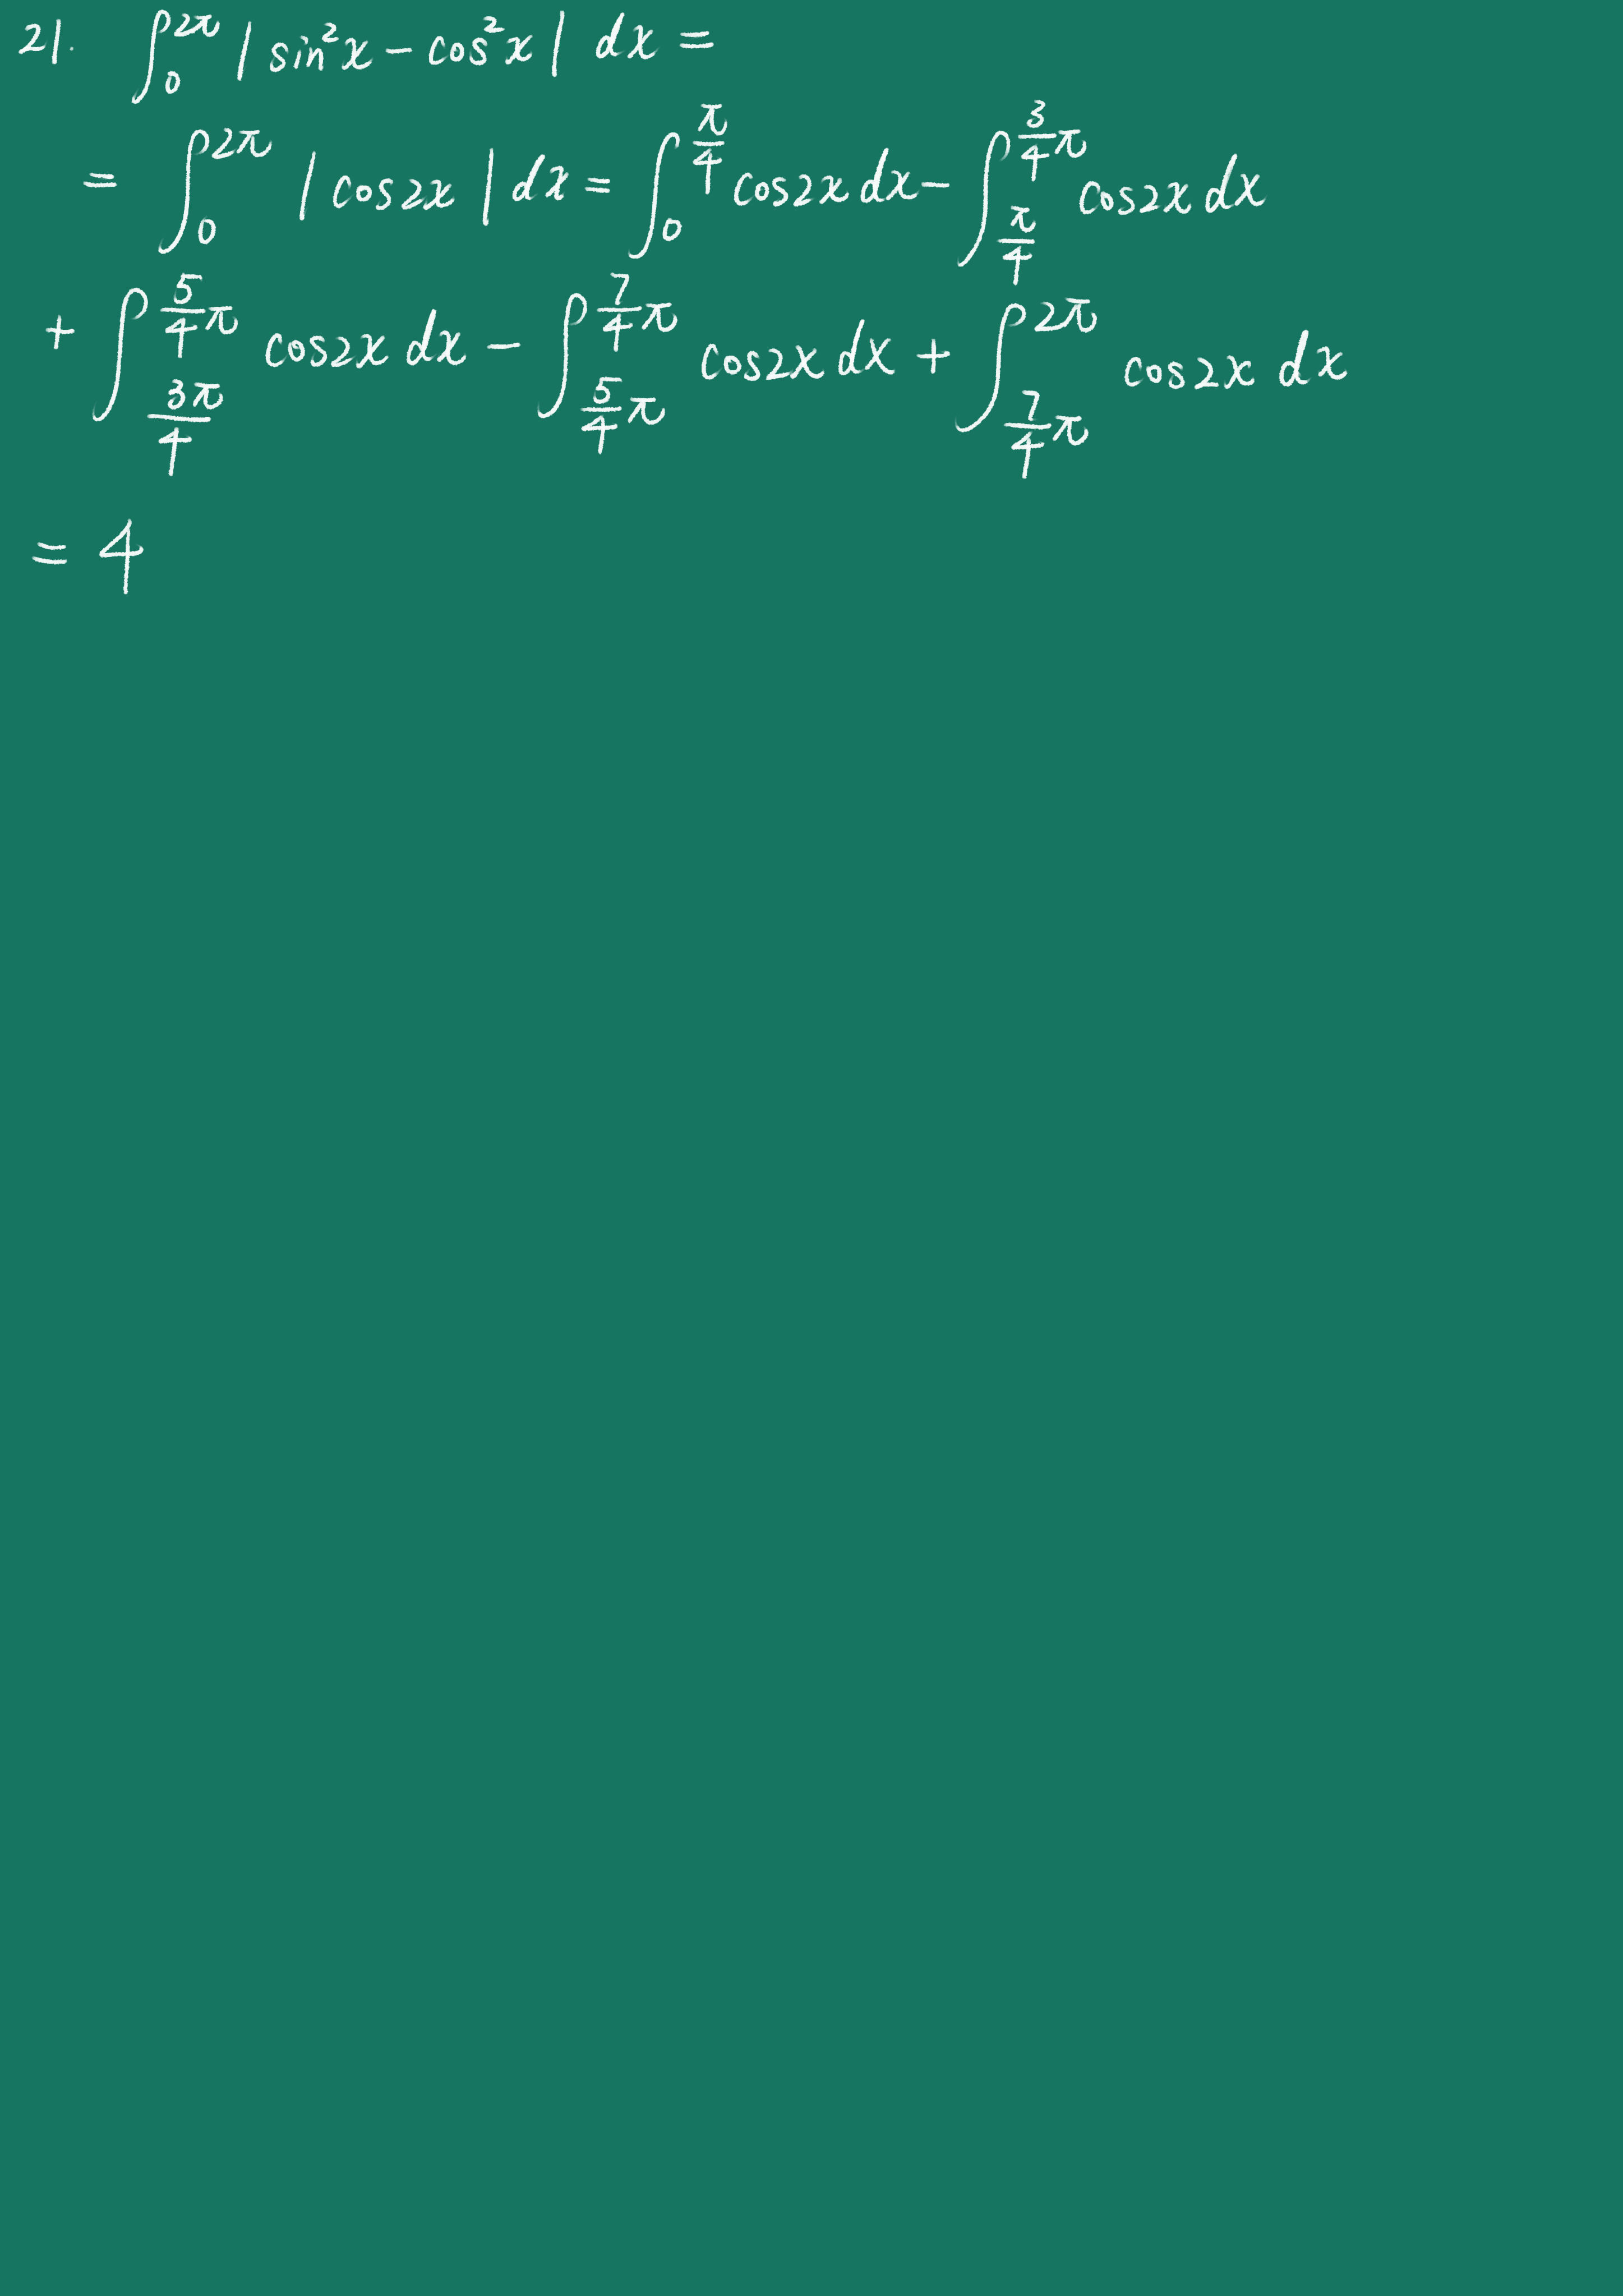 21. ∫₀^{2π} | sin²x - cos²x | dx =
= ∫₀^{2π} | cos2x | dx = ∫₀^{π/4} cos2x dx - ∫_{π/4}^{3/4 π} cos2x dx
+ ∫_{3π/4}^{5/4 π} cos2x dx - ∫_{5/4 π}^{7/4 π} cos2x dx + ∫_{7/4 π}^{2π} cos2x dx
= 4